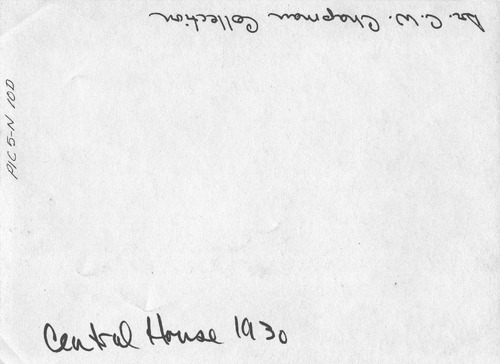 Dr. C.W. Chapman Collection
PIC5-N 10D
Central House 1930